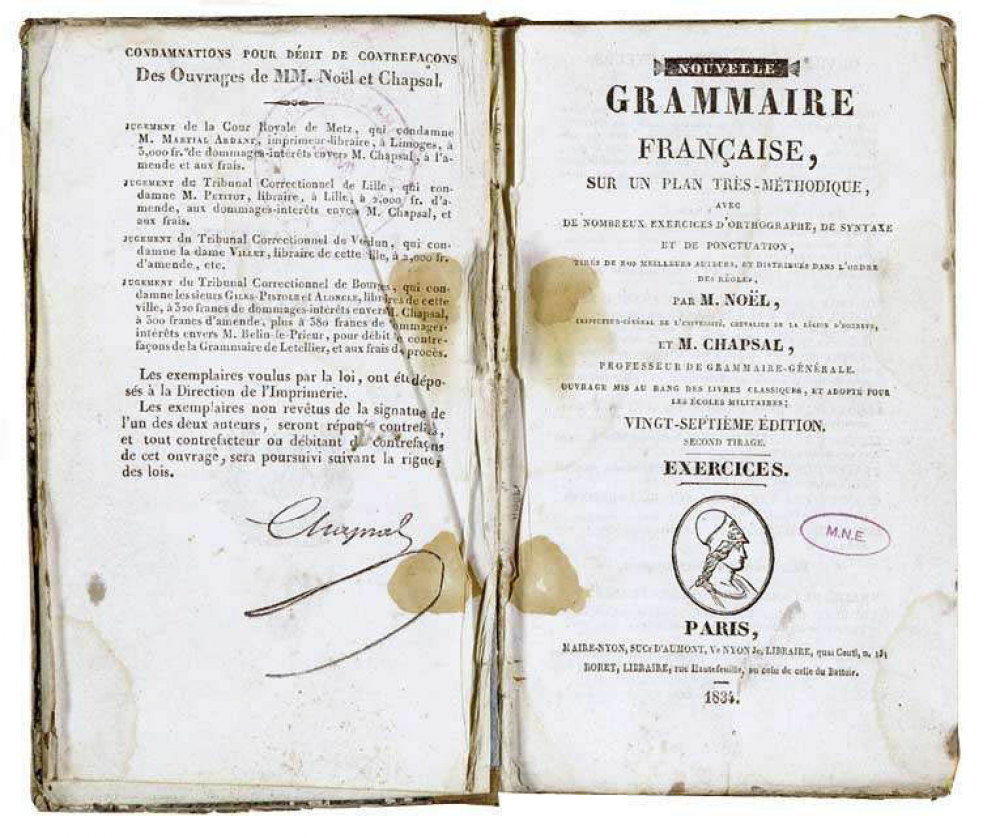 CONDAMNATIONS POUR DÉBIT DE CONTREFAÇONS
Des Ouvrages de MM. Noël et Chapsal.
JUGEMENT de la Cour Royale de Metz, qui condamne
M. MARTIAL ARDANT, imprimeur-libraire, à Limoges, à
3,000 fr. de dommages-intérêts envers M. Chapsal, à l'a-
mende et aux frais.
JUGEMENT du Tribunal Correctionnel de Lille, qui con-
damne M. PETITOT, libraire, à Lille, à 2,000 fr. d'a-
mende, aux dommages-intérêts envers M. Chapsal, et
aux frais.
JUGEMENT du Tribunal Correctionnel de Verdun, qui con-
damne la dame VILLET, libraire de cette ville, à 2,000 fr.
d'amende, etc.
JUGEMENT du Tribunal Correctionnel de Bourges, qui con-
damne les sieurs GILES-PISTOLE et ALONCLE, libraires de cette
ville, à 320 francs de dommages-intérêts envers M. Chapsal,
à 300 francs d'amende, plus à 380 francs de dommages-
intérêts envers M. Belin-le-Prieur, pour débit de contre-
façons de la Grammaire de Letellier, et aux frais du procès.
Les exemplaires voulus par la loi, ont été dépo-
sés à la Direction de l'Imprimerie.
Les exemplaires non revêtus de la signature de
l'un des deux auteurs, seront réputés contrefaits,
et tout contrefacteur ou débitant de contrefaçons
de cet ouvrage, sera poursuivi suivant la rigueur
des lois.
Chapsal
NOUVELLE
GRAMMAIRE
FRANÇAISE,
SUR UN PLAN TRÈS-MÉTHODIQUE,
AVEC
DE NOMBREUX EXERCICES D'ORTHOGRAPHE, DE SYNTAXE
ET DE PONCTUATION,
TIRÉS DE NOS MEILLEURS AUTEURS, ET DISTRIBUÉS DANS L'ORDRE
DES RÈGLES,
PAR M. NOËL,
INSPECTEUR-GÉNÉRAL DE L'UNIVERSITÉ, CHEVALIER DE LA LÉGION D'HONNEUR,
ET M. CHAPSAL,
PROFESSEUR DE GRAMMAIRE-GÉNÉRALE.
OUVRAGE MIS AU RANG DES LIVRES CLASSIQUES, ET ADOPTÉ POUR
LES ÉCOLES MILITAIRES;
VINGT-SEPTIÈME ÉDITION.
SECOND TIRAGE.
EXERCICES.
M.N.E.
PARIS,
MAIRE-NYON, SUCr D'AUMONT, Ve NYON Je, LIBRAIRE, quai Conti, n. 13;
RORET, LIBRAIRE, rue Hautefeuille, au coin de celle du Battoir.
1834.